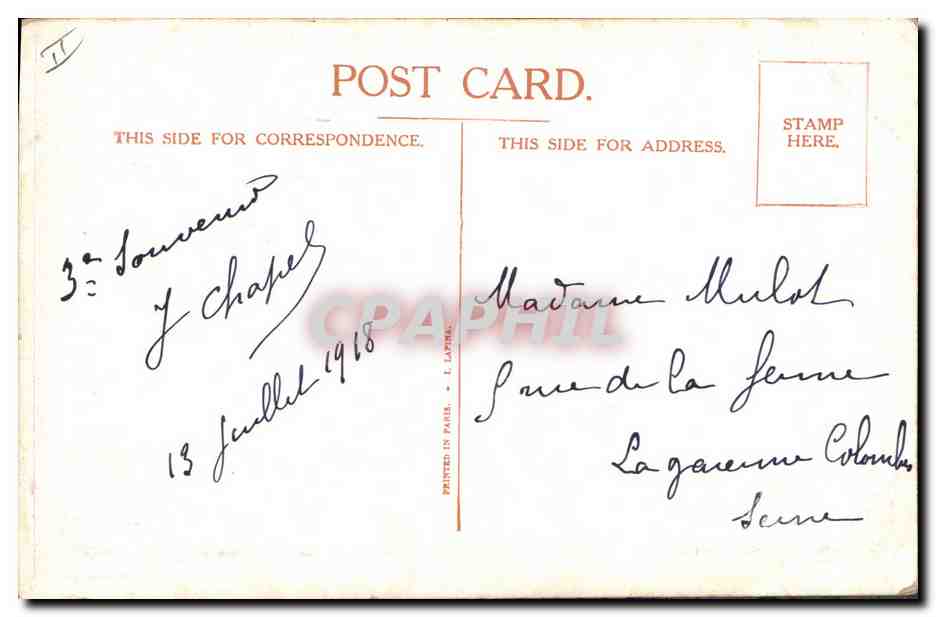 II
POST CARD.
THIS SIDE FOR CORRESPONDENCE.
THIS SIDE FOR ADDRESS.
STAMP
HERE.
3e Souvenir
J Chapel
13 Juillet 1918
PRINTED IN PARIS. - I. LAPINA.
Madame Mulot
5 rue de la ferme
La garenne Colombes
Seine
CPAPHIL